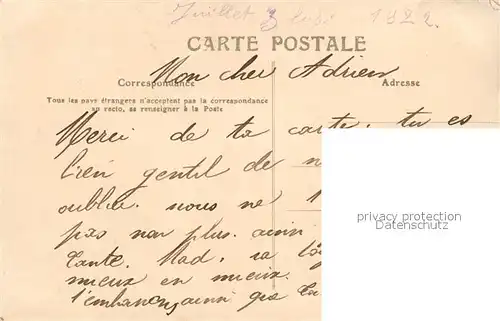 Juillet 1922.
CARTE POSTALE
Mon cher Adrien
Correspondance
Adresse
Tous les pays étrangers n'acceptent pas la correspondance
au recto, se renseigner à la Poste
Merci de ta carte. tu es
bien gentil de
oublier. nous ne
pas non plus. ainsi
tante. Mad.
mieux en mieux.
t'embrasse, ainsi que
privacy protection
Datenschutz